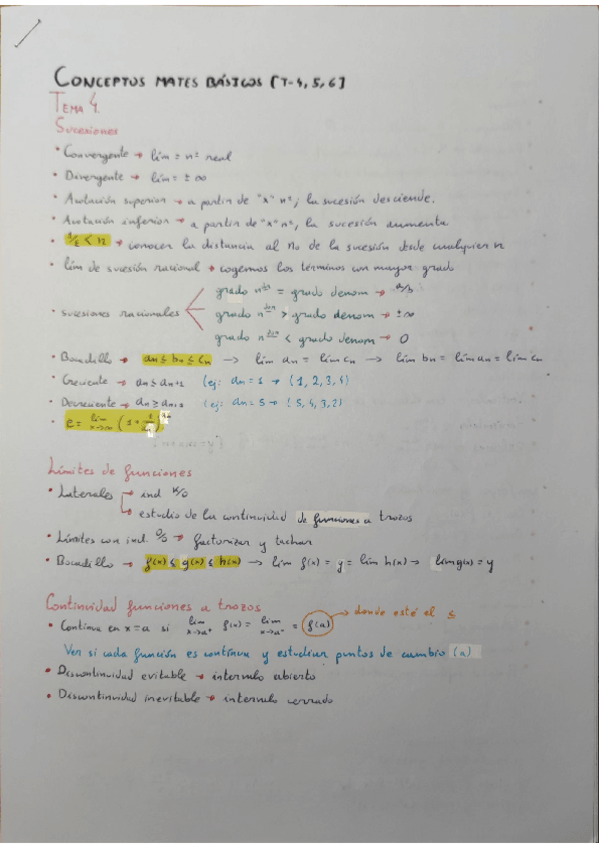 CONCEPTOS MATES BÁSICOS [T-4, 5, 6]
TEMA 4.
Sucesiones
• Convergente → lím = nº real
• Divergente → lím = ± ∞
• Acotación superior → a partir de "x" nº, la sucesión desciende.
• Acotación inferior → a partir de "x" nº, la sucesión aumenta
• 1/ε < n → conocer la distancia al nº de la sucesión desde cualquier n
• lím de sucesión racional → cogemos los términos con mayor grado
grado num = grado denom → a/b
• sucesiones racionales grado num > grado denom → ± ∞
grado num < grado denom → 0
• Bocadillo → an ≤ bn ≤ cn → lím an = lím cn → lím bn = lím an = lím cn
• Creciente → an ≤ an+1 (ej: an = 1 → (1, 2, 3, 4)
• Decreciente → an ≥ an+1 (ej: an = 5 → (5, 4, 3, 2)
• e = lím x→∞ (1 + 1/
Límites de funciones
• Laterales → ind K/0
→ estudio de la continuidad de funciones a trozos
• Límites con ind. 0/0 → factorizar y tachar
• Bocadillo → f(x) ≤ g(x) ≤ h(x) → lím f(x) = y = lím h(x) → lím g(x) = y
Continuidad funciones a trozos
→ donde esté el ≤
• Continua en x = a si lím x→a⁺ f(x) = lím x→a⁻ = f(a)
Ver si cada función es continua y estudiar puntos de cambio (a)
• Discontinuidad evitable → intervalo abierto
• Discontinuidad inevitable → intervalo cerrado